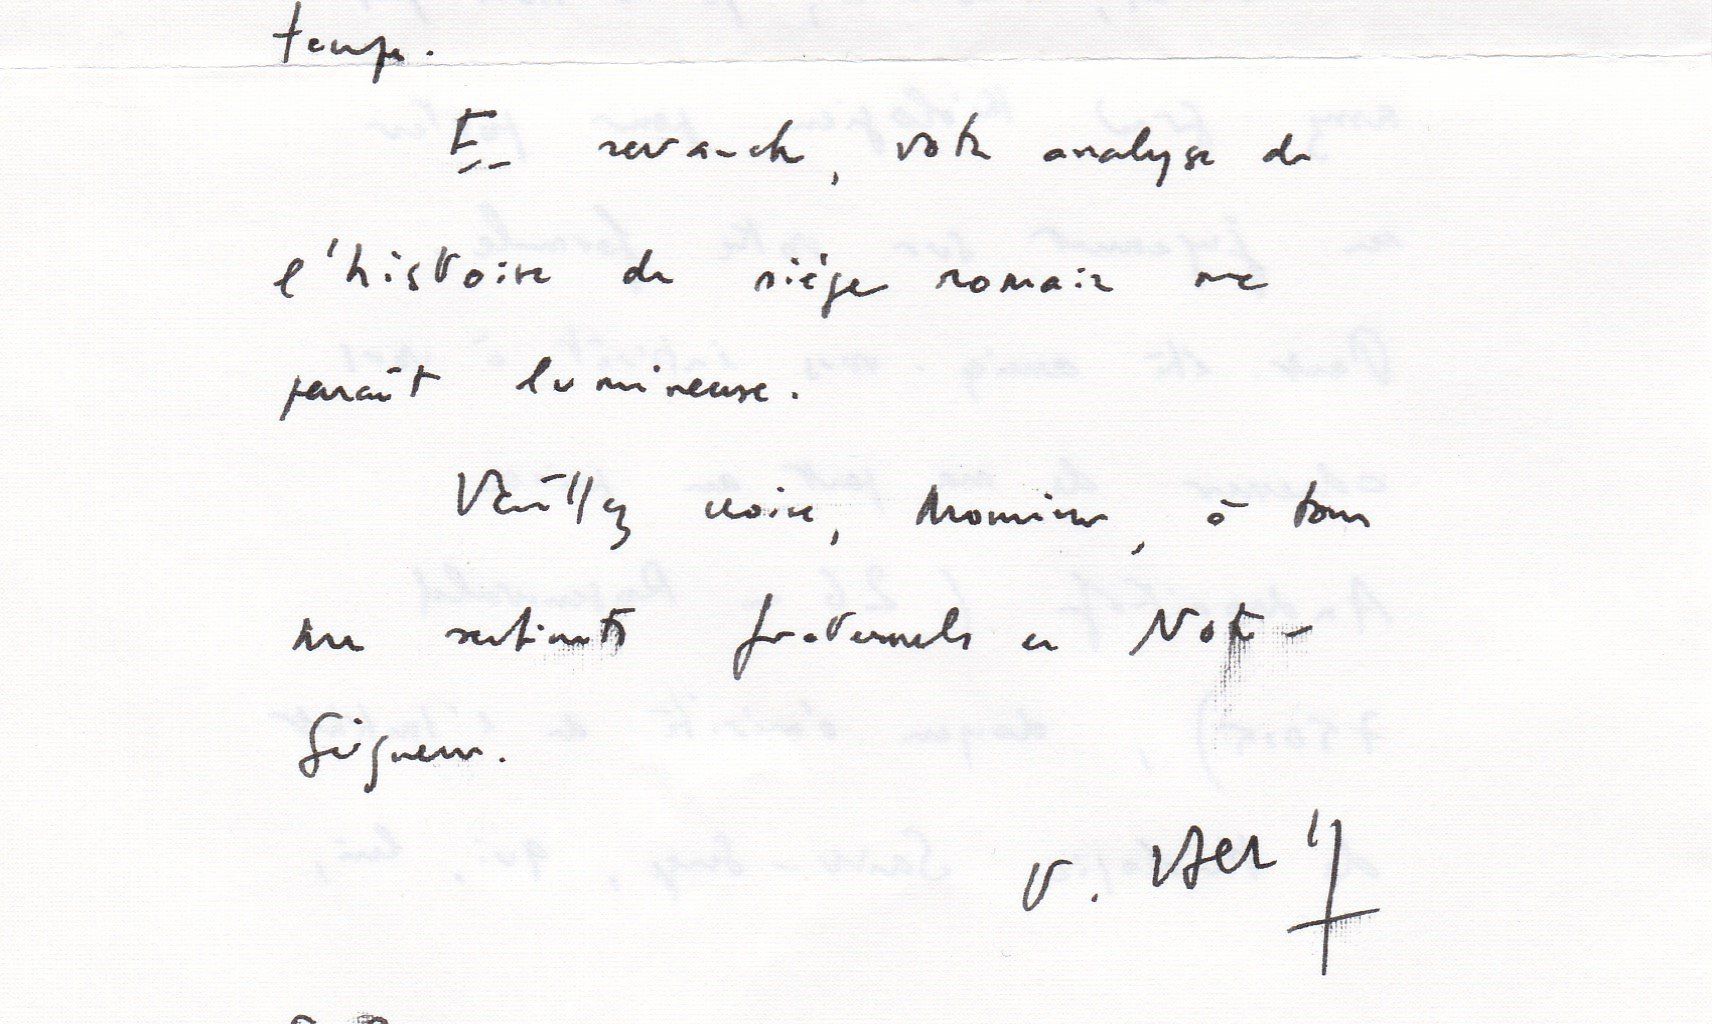 temps.
En revanche, votre analyse de
l'histoire du siège romain me
paraît lumineuse.
Veuillez croire, Monsieur, à tous
mes sentiments fraternels en Notre-
Seigneur.
V.